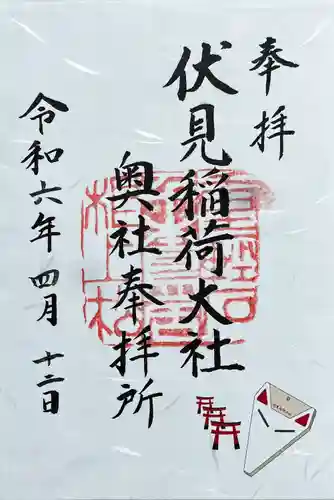 奉拝
伏見稲荷大社
奥社奉拝所
令和六年四月十二日